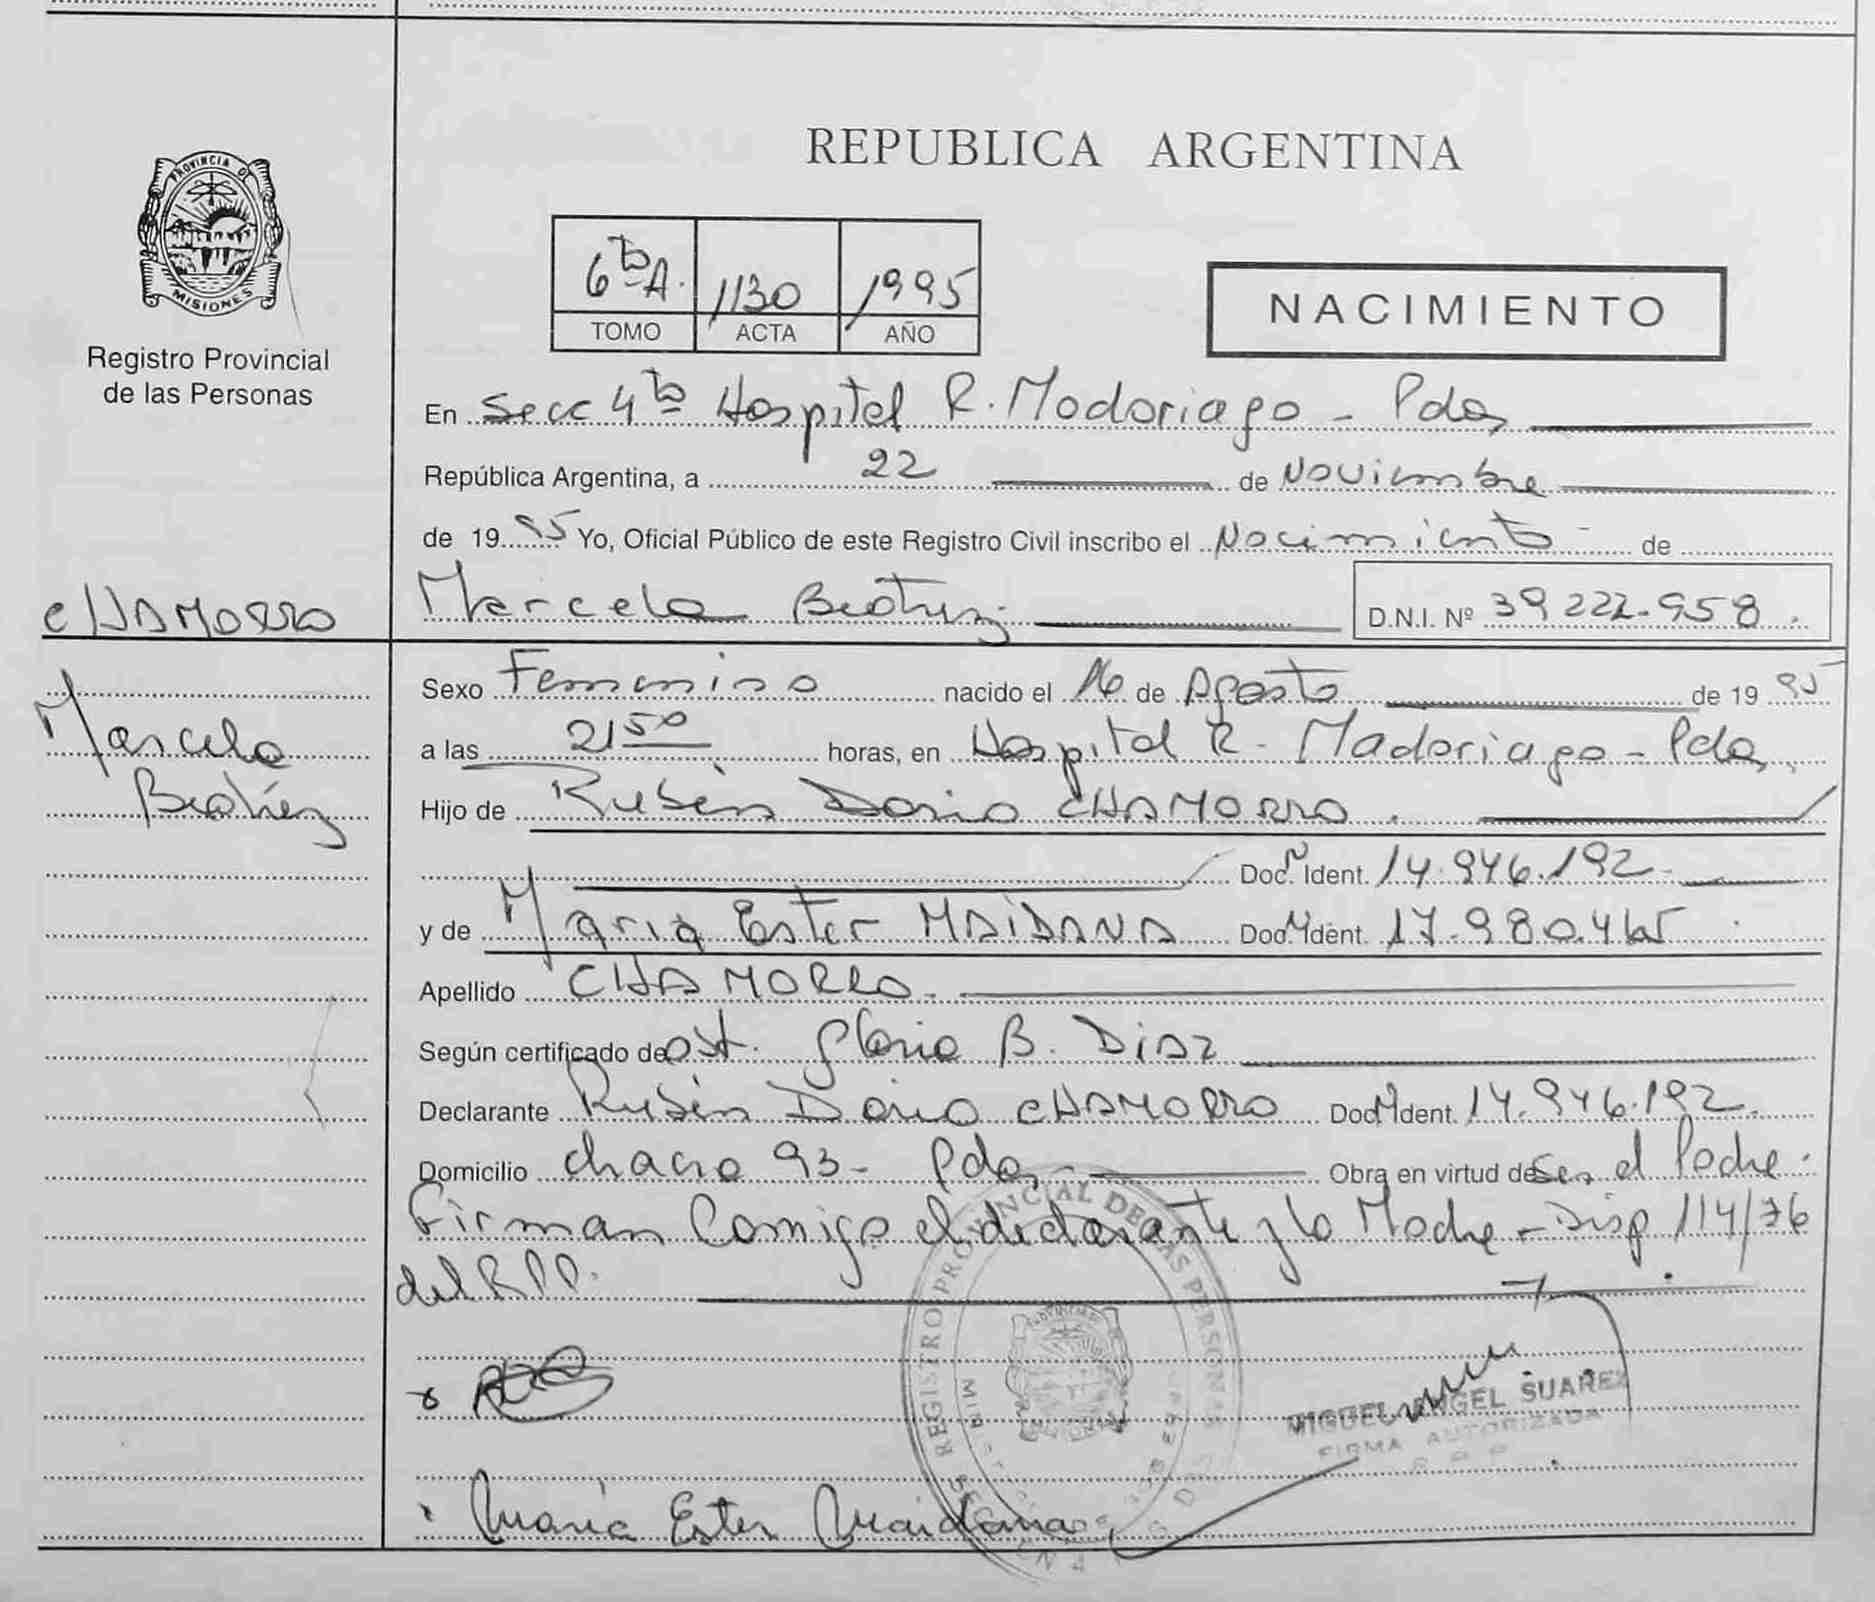 REPUBLICA ARGENTINA
PROVINCIA DE
MISIONES
Registro Provincial
de las Personas
6toA. 1130 1995
TOMO ACTA AÑO
NACIMIENTO
En Secc 4ta Hospital R. Madariaga - Pdas
República Argentina, a 22 de Noviembre
de 1995 Yo, Oficial Público de este Registro Civil inscribo el Nacimiento de
CHAMORRO
Marcela Beatriz D.N.I. Nº 39.222.958.
Marcela
Beatriz
Sexo Femenino nacido el 16 de Agosto de 1995
a las 21 50 horas, en Hospital R. Madariaga - Pdas.
Hijo de Rubén Dario CHAMORRO.
Doc. N Ident. 14.946.192
y de Maria Ester MAIDANA Doc. N Ident. 17.980.465
Apellido CHAMORRO.
Según certificado de Ost. Gloria B. Diaz
Declarante Rubén Dario CHAMORRO Doc. N Ident. 14.946.192.
Domicilio chacra 93- Pdas Obra en virtud de Ser el Padre.
Firman Comigo el declarante y la Madre - Disp 114/76
del R.P.P.
REGISTRO PROVINCIAL DE LAS PERSONAS
MIGUEL ANGEL SUAREZ
FIRMA AUTORIZADA
R P P
María Ester Maidana